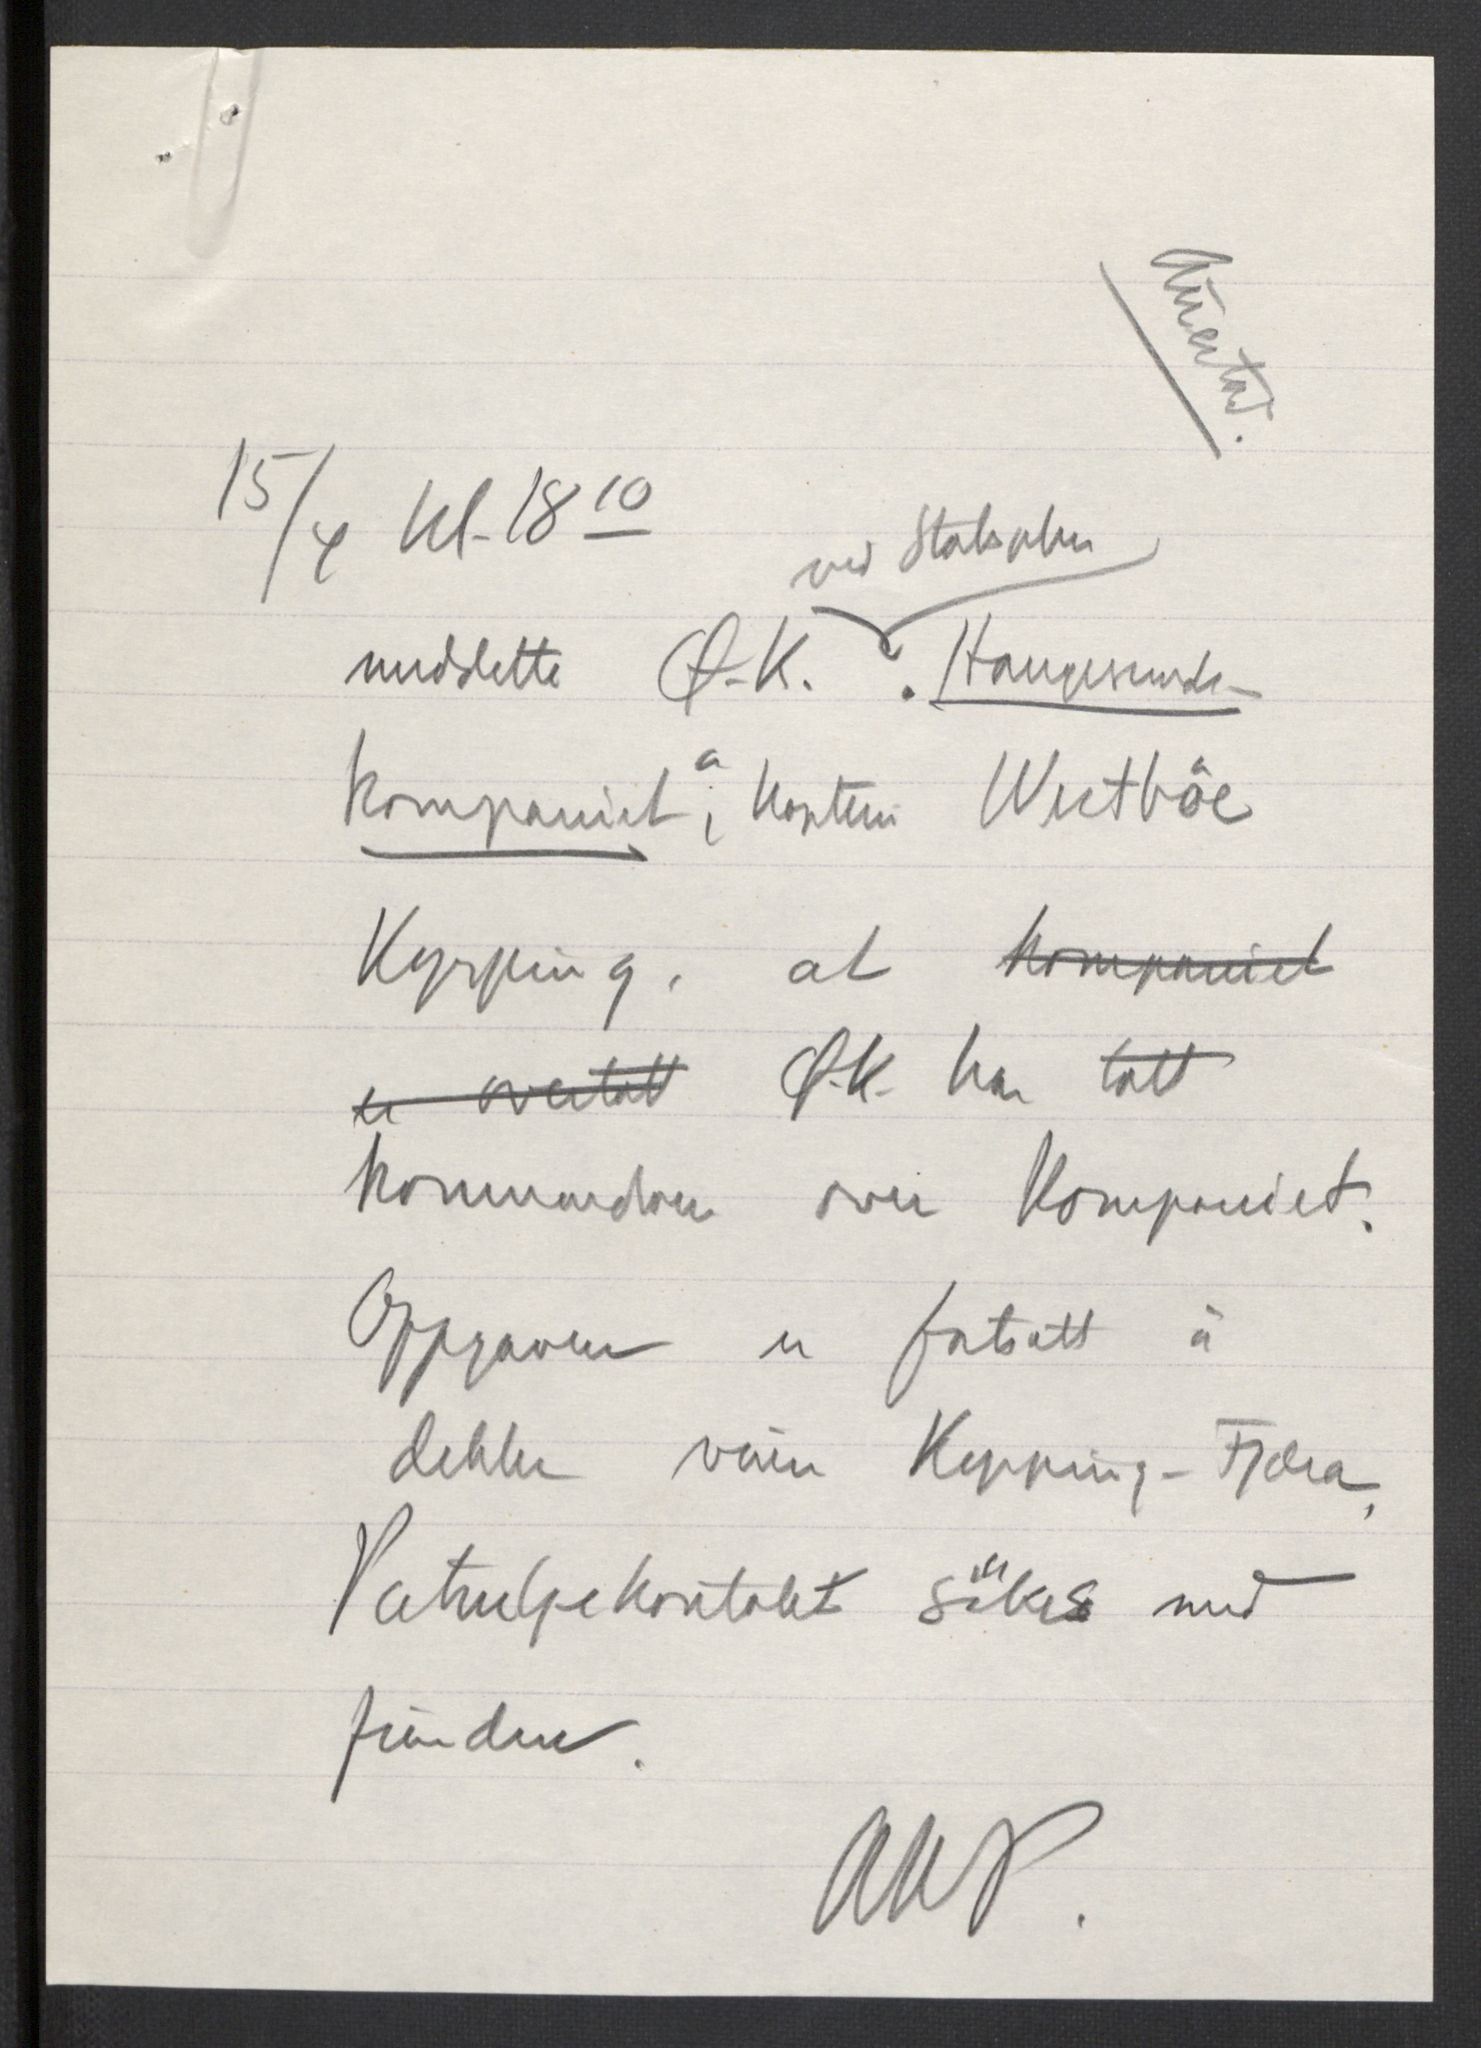 15/4 kl. 18 10
ved Stabssjefen
meddelte Ø.K. Haugesunds-
kompaniet, kaptein Westböe
Kyrping, at kompaniet
er overtatt Ø.K. har tatt
kommandoen over kompaniet.
Oppgaven er fortsatt å
dekke veien Kyrping - Fjæra,
Patruljekontakt søkes med
fienden.